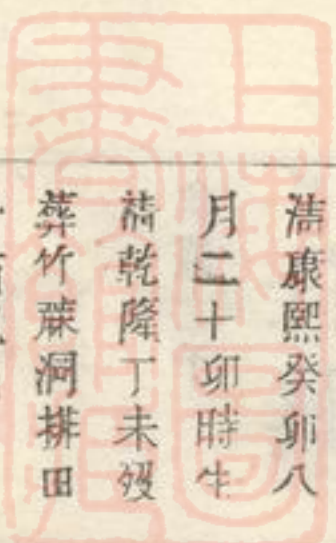 清康熙癸卯八
月二十卯時生
清乾隆丁未歿
葬竹蔴洞排田